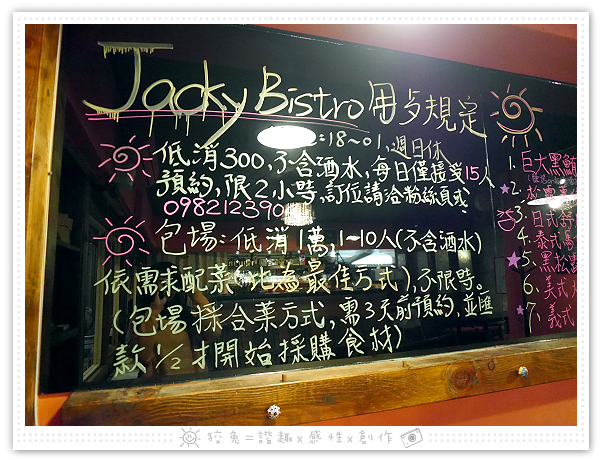 Jacky Bistro 用歺規定
:18~01,週日休
低消300,不含酒水,每日僅接受15人
預約,限2小時,訂位請洽粉絲頁或
098212390
包場:低消1萬,1~10人(不含酒水)
依需求配菜(此為最佳方式),不限時。
(包場採合菜方式,需3天前預約,並匯
款1/2才開始採購食材)
1. 巨大黑鮪
2.
3. 日式
4. 泰式
5. 黑松露
6. 美式
7. 義式
狡兔=諧趣x感性x創作